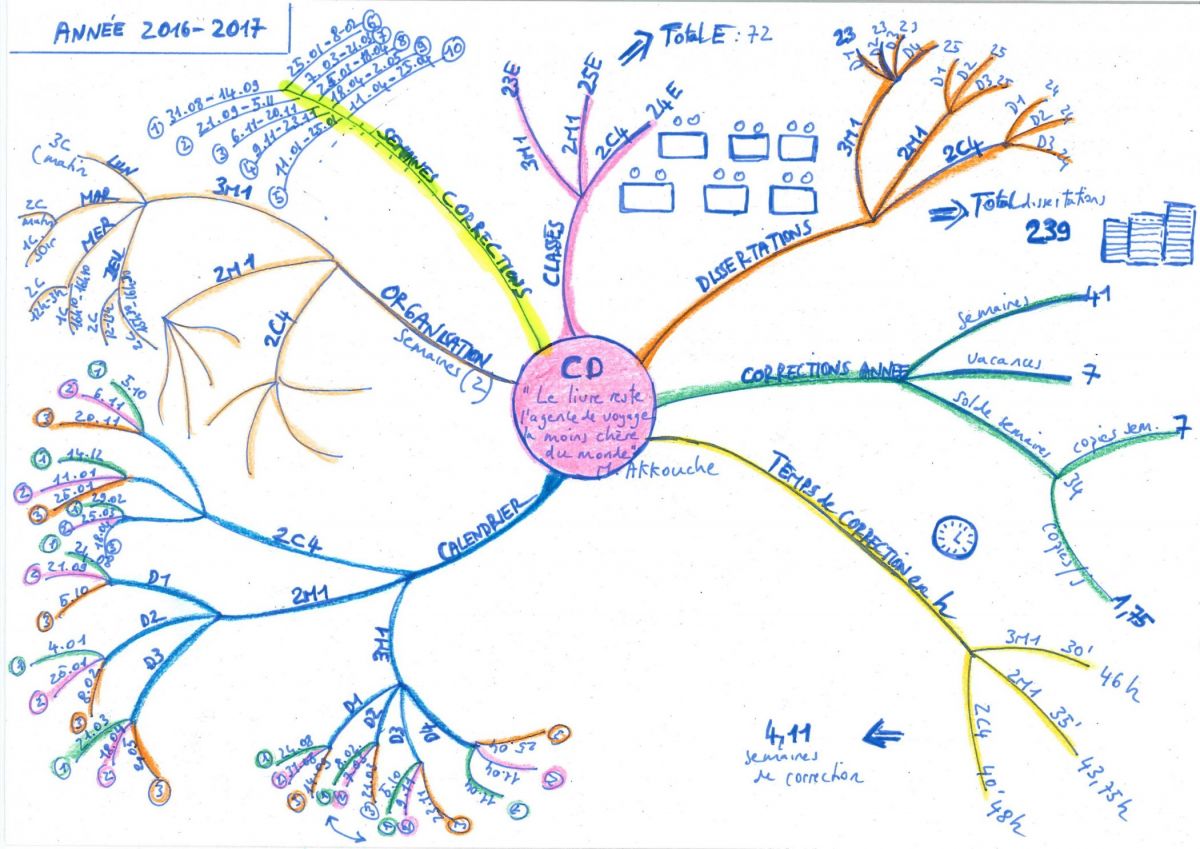 ANNÉE 2016-2017
① 31.08 - 14.09
② 21.09 - 5.11
③ 6.11 - 20.11
④
⑤ 11.01 - 25.01
25.01 - 8.02 ⑥
⑦
⑧
18.04 - 2.05 ⑨
11.04 - 25.04 ⑩
SEMAINES CORRECTIONS
CLASSES
3M1
23E
2M1
25E
2C4
24E
Total E : 72
DISSERTATIONS
3M1
23
D1
D2
23
D3
23
D4
2M1
D1
25
D2
25
D3
25
2C4
D1
24
D2
24
D3
24
Total dissertations
239
ORGANISATION
semaines (2)
3M1
LUN
3C
(matin)
MAR
2C
matin
1C
soir
MER
2C
12h-3h
1C
JEU
2C
2M1
2C4
CD
"Le livre reste
l'agence de voyage
la moins chère
du monde"
M. AKKOUCHE
CORRECTIONS ANNÉE
semaines
41
vacances
7
solde semaines
34
copies sem.
7
copies/j
1,75
TEMPS de CORRECTION en h
3M1
30'
46h
2M1
35'
43,75h
2C4
40'
48h
4,11
semaines
de correction
CALENDRIER
2C4
① 5.10
② 6.11
③ 20.11
① 14.12
② 11.01
③ 25.01
① 29.02
②
③ 18.04
2M1
D1
① 24.08
② 21.09
③ 5.10
D2
① 4.01
② 25.01
③ 8.02
D3
① 21.03
② 18.04
③ 2.05
3M1
D1
① 24.08
②
③ 14.09
D2
① 8.02
②
③
D3
① 5.10
② 9.11
③
D4
① 11.04
② 11.04
③ 25.04